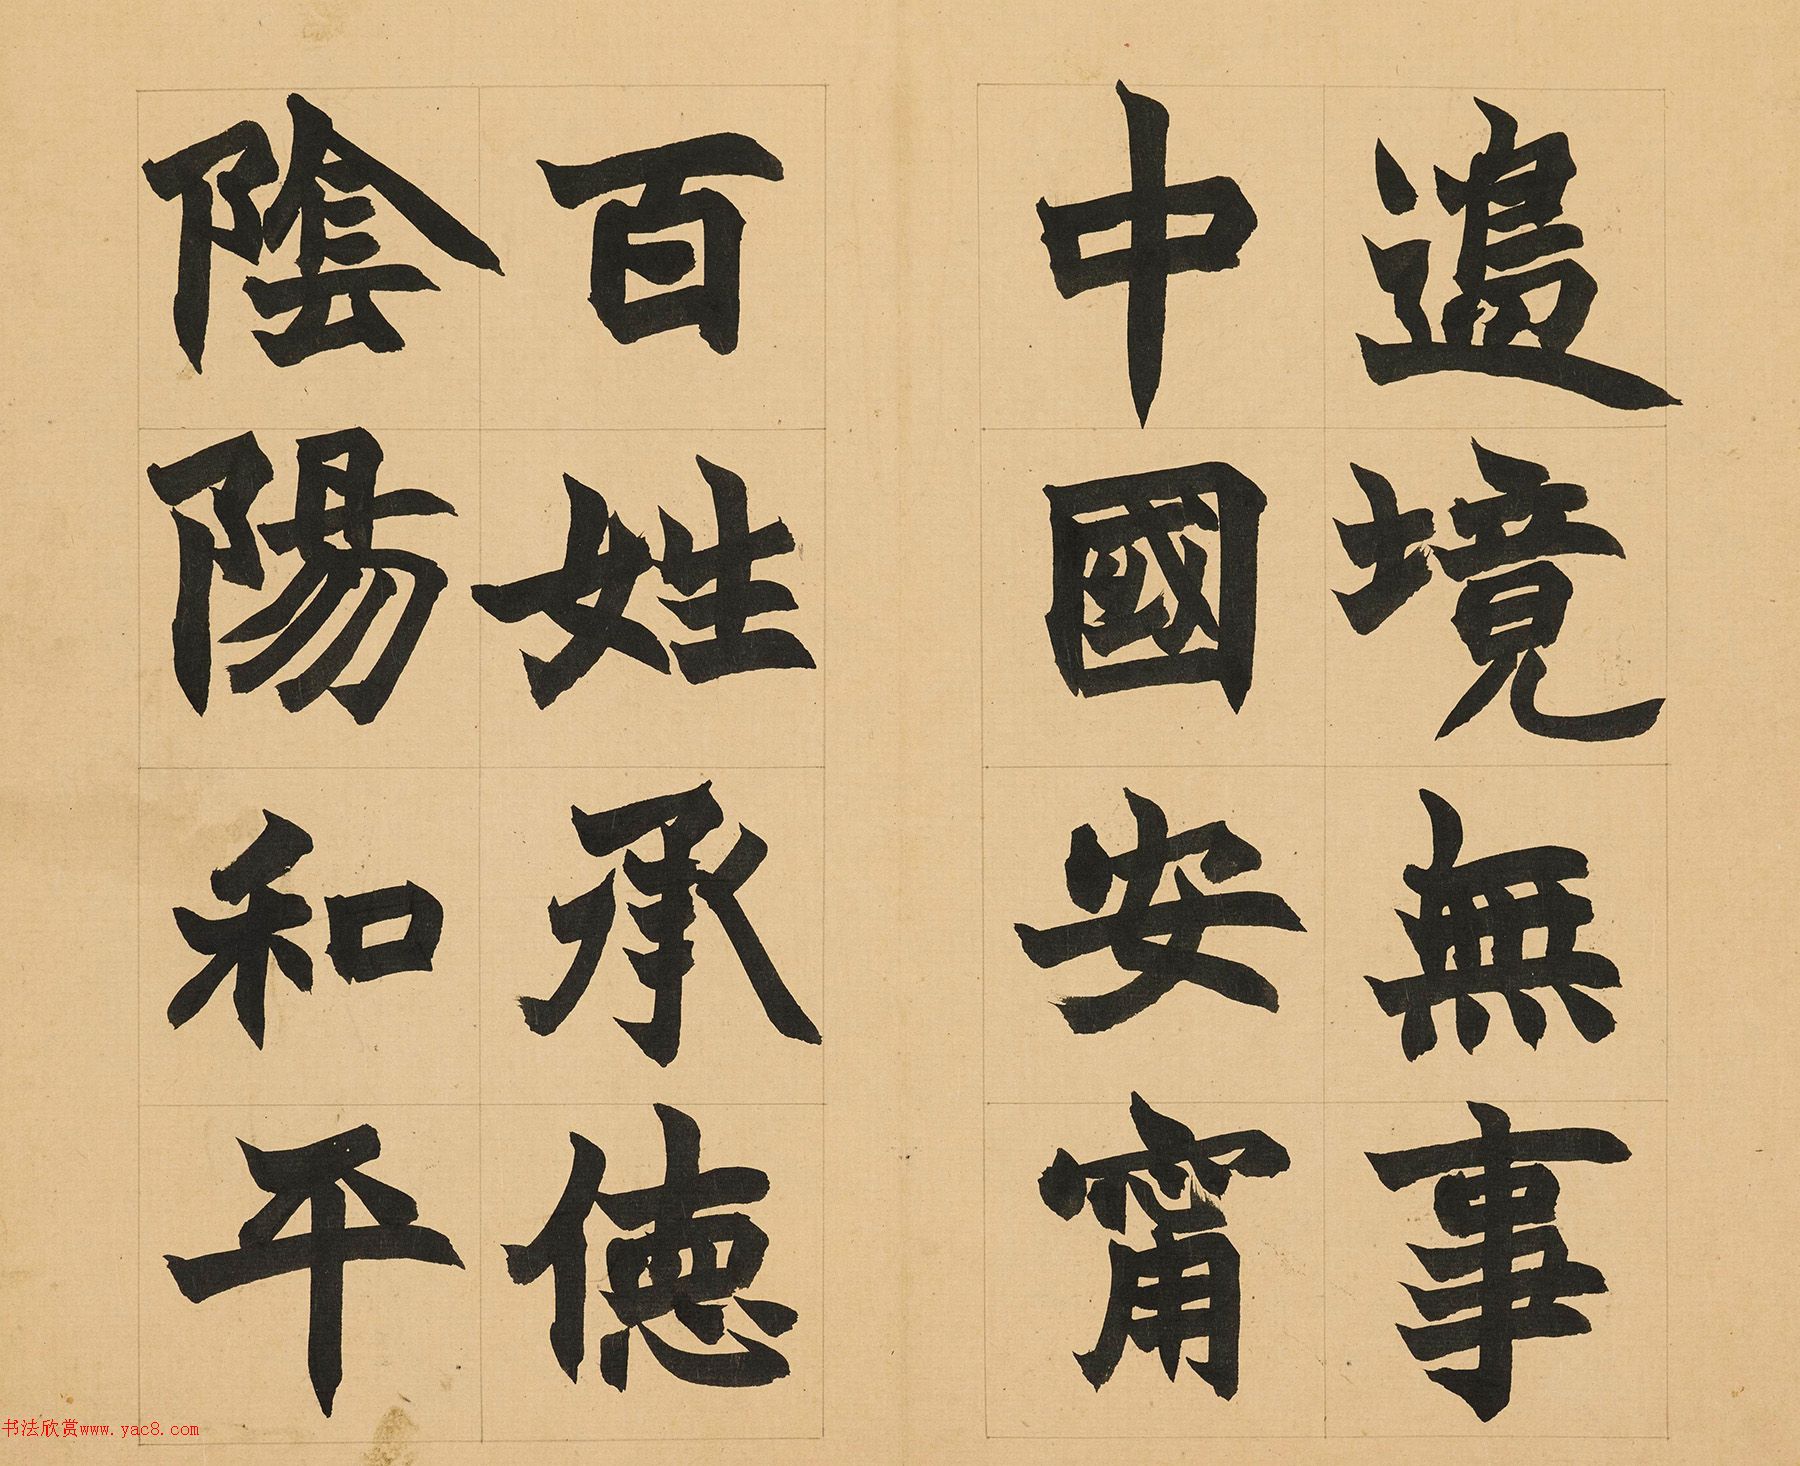 邉境無事
中國安甯
百姓承徳
陰陽和平
书法欣赏www.yac8.com